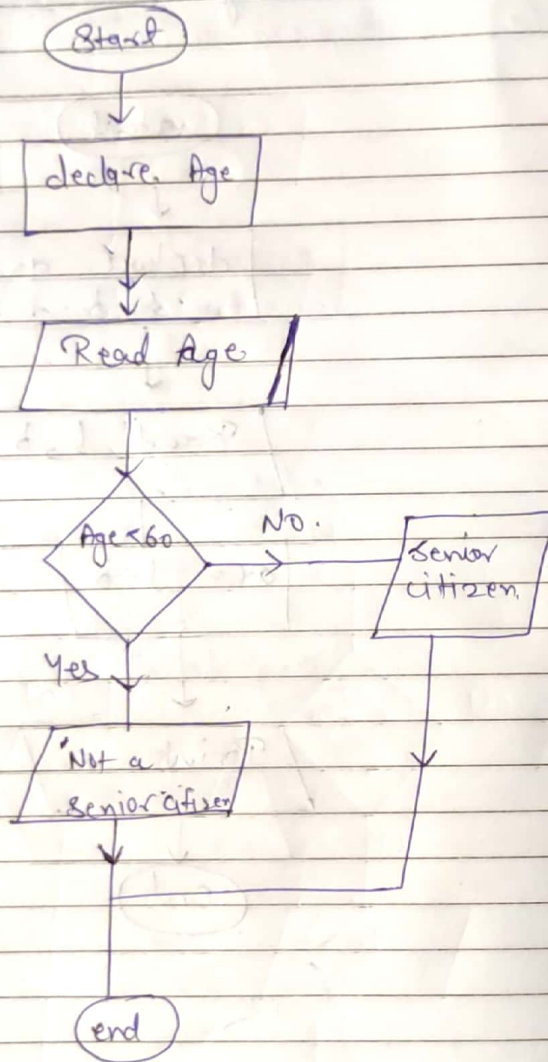 Start
declare Age
Read Age
Age < 60
No.
Senior
citizen.
Yes
"Not a
Senior citizen
end